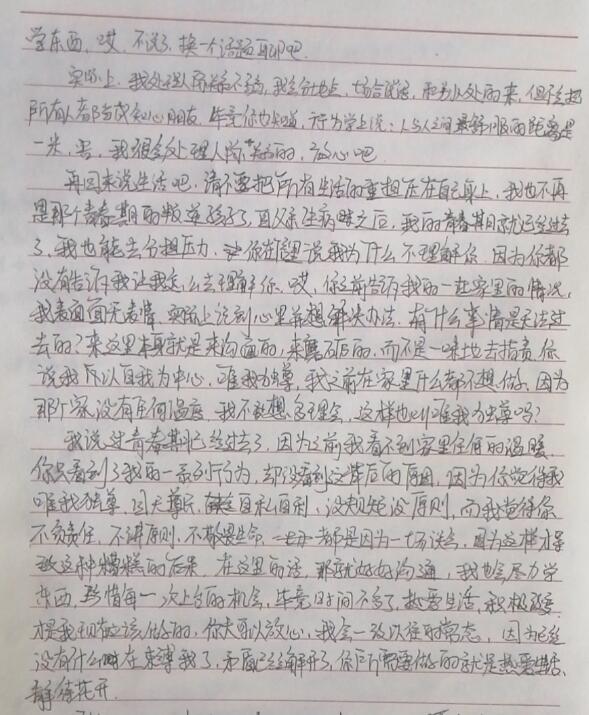 学东西，哎，不说了，换一个话题聊吧
实际上，我处理人际关系不错，我会分地点，场合说话，和别人处的来，但不会把
所有人都当成知心朋友，毕竟你也知道，行为学上说：人与人之间最舒服的距离是
一米，害，我很会处理人际关系的，放心吧
再回来说生活吧，请不要把所有生活的重担压在自己身上，我也不再
是那个青春期的叛逆孩子了，自父亲生病之后，我的青春期就已经过去
了，我也能去分担压力，你在信里说我为什么不理解你，因为你都
没有告诉我让我怎么去理解你，哎，你之前告诉我的一些家里的情况，
我表面面无表情，实际上说到心里并想解决办法，有什么事情是无法过
去的？来这里本身就是来沟通的，来磨砺的，而不是一味地去指责，你
说我以自我为中心，唯我独尊，我之前在家里什么都不想做，因为
那个家没有任何温度，我不想多理会，这样也叫唯我独尊吗？
我说过青春期已经过去了，因为之前我看不到家里任何的温暖，
你只看到了我的一系列行为，却没看到这背后的原因，因为你觉得我
唯我独尊，自私自利，没规矩没原则，而我觉得你
不负责任，不讲原则，不敬畏生命，都是因为一场误会，因为这样才导
致这种糟糕的后果，在这里的话，那就好好沟通，我也会尽力学
东西，珍惜每一次上台的机会，毕竟时间不多了，热爱生活，积极改变
才是我现在应该做的，你大可以放心，我会一改以往的常态，因为已经
没有什么在束缚我了，矛盾已经解开了，你所需要做的就是热爱生活，
静待花开．